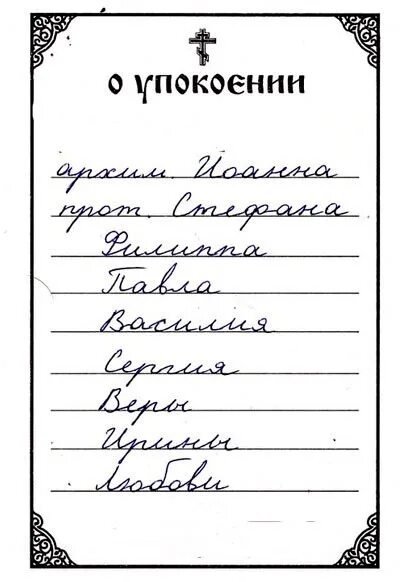 О УПОКОЕНИИ
архим. Иоанна
прот. Стефана
Филиппа
Павла
Василия
Сергия
Веры
Ирины
Любови